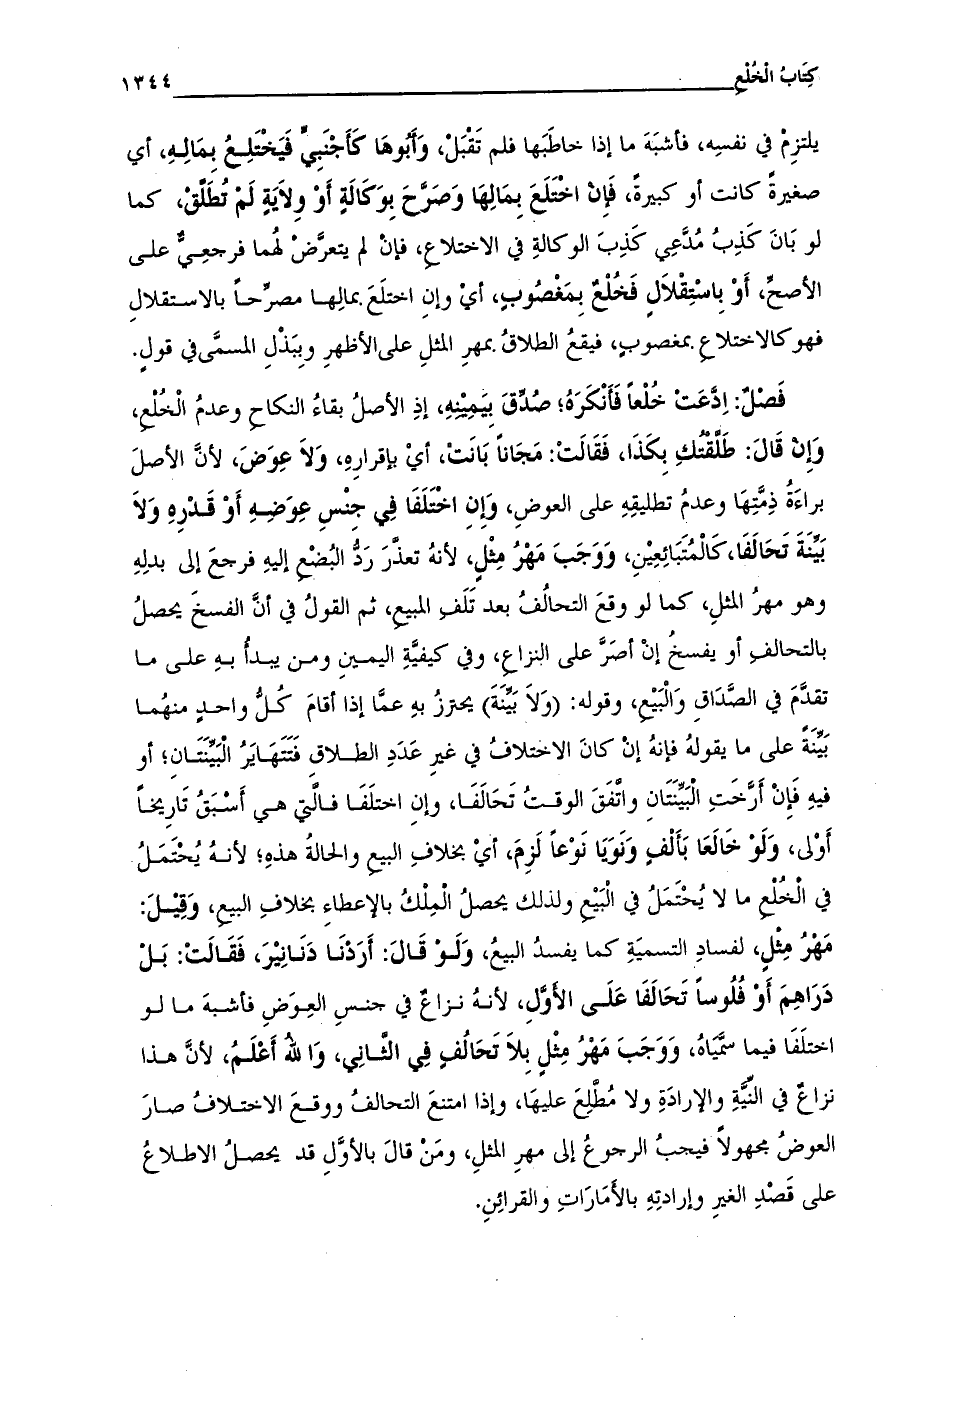 كِتَابُ الْخُلْعِ ١٣٤٤
يلتزِمْ في نفسِه، فأشبَهَ ما إذا خاطبَها فلم تَقْبَلْ، وَأَبُوهَا كَأَجْنَبِيٍّ فَيَخْتَلِعُ بِمَالِهِ، أي
صغيرةً كانت أو كبيرةً، فَإِنْ اخْتَلَعَ بِمَالِهَا وَصَرَّحَ بِوَكَالَةٍ أَوْ وِلاَيَةٍ لَمْ تُطَلَّقْ، كما
لو بَانَ كَذِبُ مُدَّعِي كَذِبَ الوكالةِ في الاختلاعِ، فإنْ لم يتعرَّضْ لهُما فرجعِيٌّ على
الأصحِّ، أَوْ بِاسْتِقْلاَلٍ فَخُلْعٌ بِمَغْصُوبٍ، أيْ وإنِ اختلَعَ بمالِها مصرِّحاً بالاستقلالِ
فهو كالاختلاعِ بمغصوبٍ، فيقعُ الطلاقُ بمهرِ المثلِ على الأظهرِ وبِبَذْلِ المسمَّى في قولٍ.
فَصْلٌ: اِدَّعَتْ خُلْعاً فَأَنْكَرَهُ؛ صُدِّقَ بِيَمِيْنِهِ، إذِ الأصلُ بقاءُ النكاحِ وعدمُ الْخُلْعِ،
وَإِنْ قَالَ: طَلَّقْتُكِ بِكَذَا، فَقَالَتْ: مَجَاناً بَانَتْ، أيْ بإقرارِهِ، وَلاَ عِوَضَ، لأنَّ الأصلَ
براءَةُ ذِمَّتِهَا وعدمُ تطليقِهِ على العوضِ، وَإِنِ اخْتَلَفَا فِي جِنْسِ عِوَضِهِ أَوْ قَدْرِهِ وَلاَ
بَيِّنَةَ تَحَالَفَا، كَالْمُتَبَائِعِيْنِ، وَوَجَبَ مَهْرُ مِثْلٍ، لأنهُ تعذَّرَ رَدُّ البُضْعِ إليهِ فرجعَ إلى بدلِهِ
وهو مهرُ المثلِ، كما لو وقعَ التحالُفُ بعد تَلَفِ المبيعِ، ثم القولُ في أنَّ الفسخَ يحصلُ
بالتحالفِ أو يفسخُ إنْ أصَرَّ على النزاعِ، وفي كيفيَّةِ اليمينِ ومن يبدأُ بهِ على ما
تقدَّمَ في الصَّدَاقِ وَالْبَيْعِ، وقوله: (وَلاَ بَيِّنَةَ) يحترزُ بهِ عمَّا إذا أقامَ كُلُّ واحدٍ منهُما
بَيِّنَةً على ما يقولهُ فإنهُ إنْ كانَ الاختلافُ في غيرِ عَدَدِ الطلاقِ فَتَتَهَايَرُ الْبَيِّنَتَانِ؛ أو
فيهِ فَإِنْ أَرَّخَتِ الْبَيِّنَتَانِ واتَّفَقَ الوقتُ تَحَالَفَا، وإنِ اختلَفَا فالَّتي هي أَسْبَقُ تَارِيخاً
أَوْلى، وَلَوْ خَالَعَا بِأَلْفٍ وَنَوَيَا نَوْعاً لَزِمَ، أيْ بخلافِ البيعِ والحالةُ هذهِ؛ لأنهُ يُحْتَمَلُ
في الْخُلْعِ ما لا يُحْتَمَلُ في الْبَيْعِ ولذلك يحصلُ الْمِلْكُ بالإعطاءِ بخلافِ البيعِ، وَقِيْلَ:
مَهْرُ مِثْلٍ، لفسادِ التسميَةِ كما يفسدُ البيعُ، وَلَوْ قَالَ: أَرَدْنَا دَنَانِيْرَ، فَقَالَتْ: بَلْ
دَرَاهِمَ أَوْ فُلُوساً تَحَالَفَا عَلَى الأَوَّلِ، لأنهُ نزاعٌ في جنسِ العِوَضِ فأشبهَ ما لو
اختلَفَا فيما سَمَّيَاهُ، وَوَجَبَ مَهْرُ مِثْلٍ بِلاَ تَحَالُفٍ فِي الثَّانِي، وَاللهُ أَعْلَمُ، لأنَّ هذا
نزاعٌ في النِّيَّةِ والإرادَةِ ولا مُطَّلِعَ عليهَا، وإذا امتنعَ التحالفُ ووقعَ الاختلافُ صارَ
العوضُ مجهولاً فيجبُ الرجوعُ إلى مهرِ المثلِ، ومَنْ قالَ بالأوَّلِ قد يحصلُ الاطلاعُ
على قَصْدِ الغيرِ وإرادتِهِ بالأَمَارَاتِ والقرائِنِ.